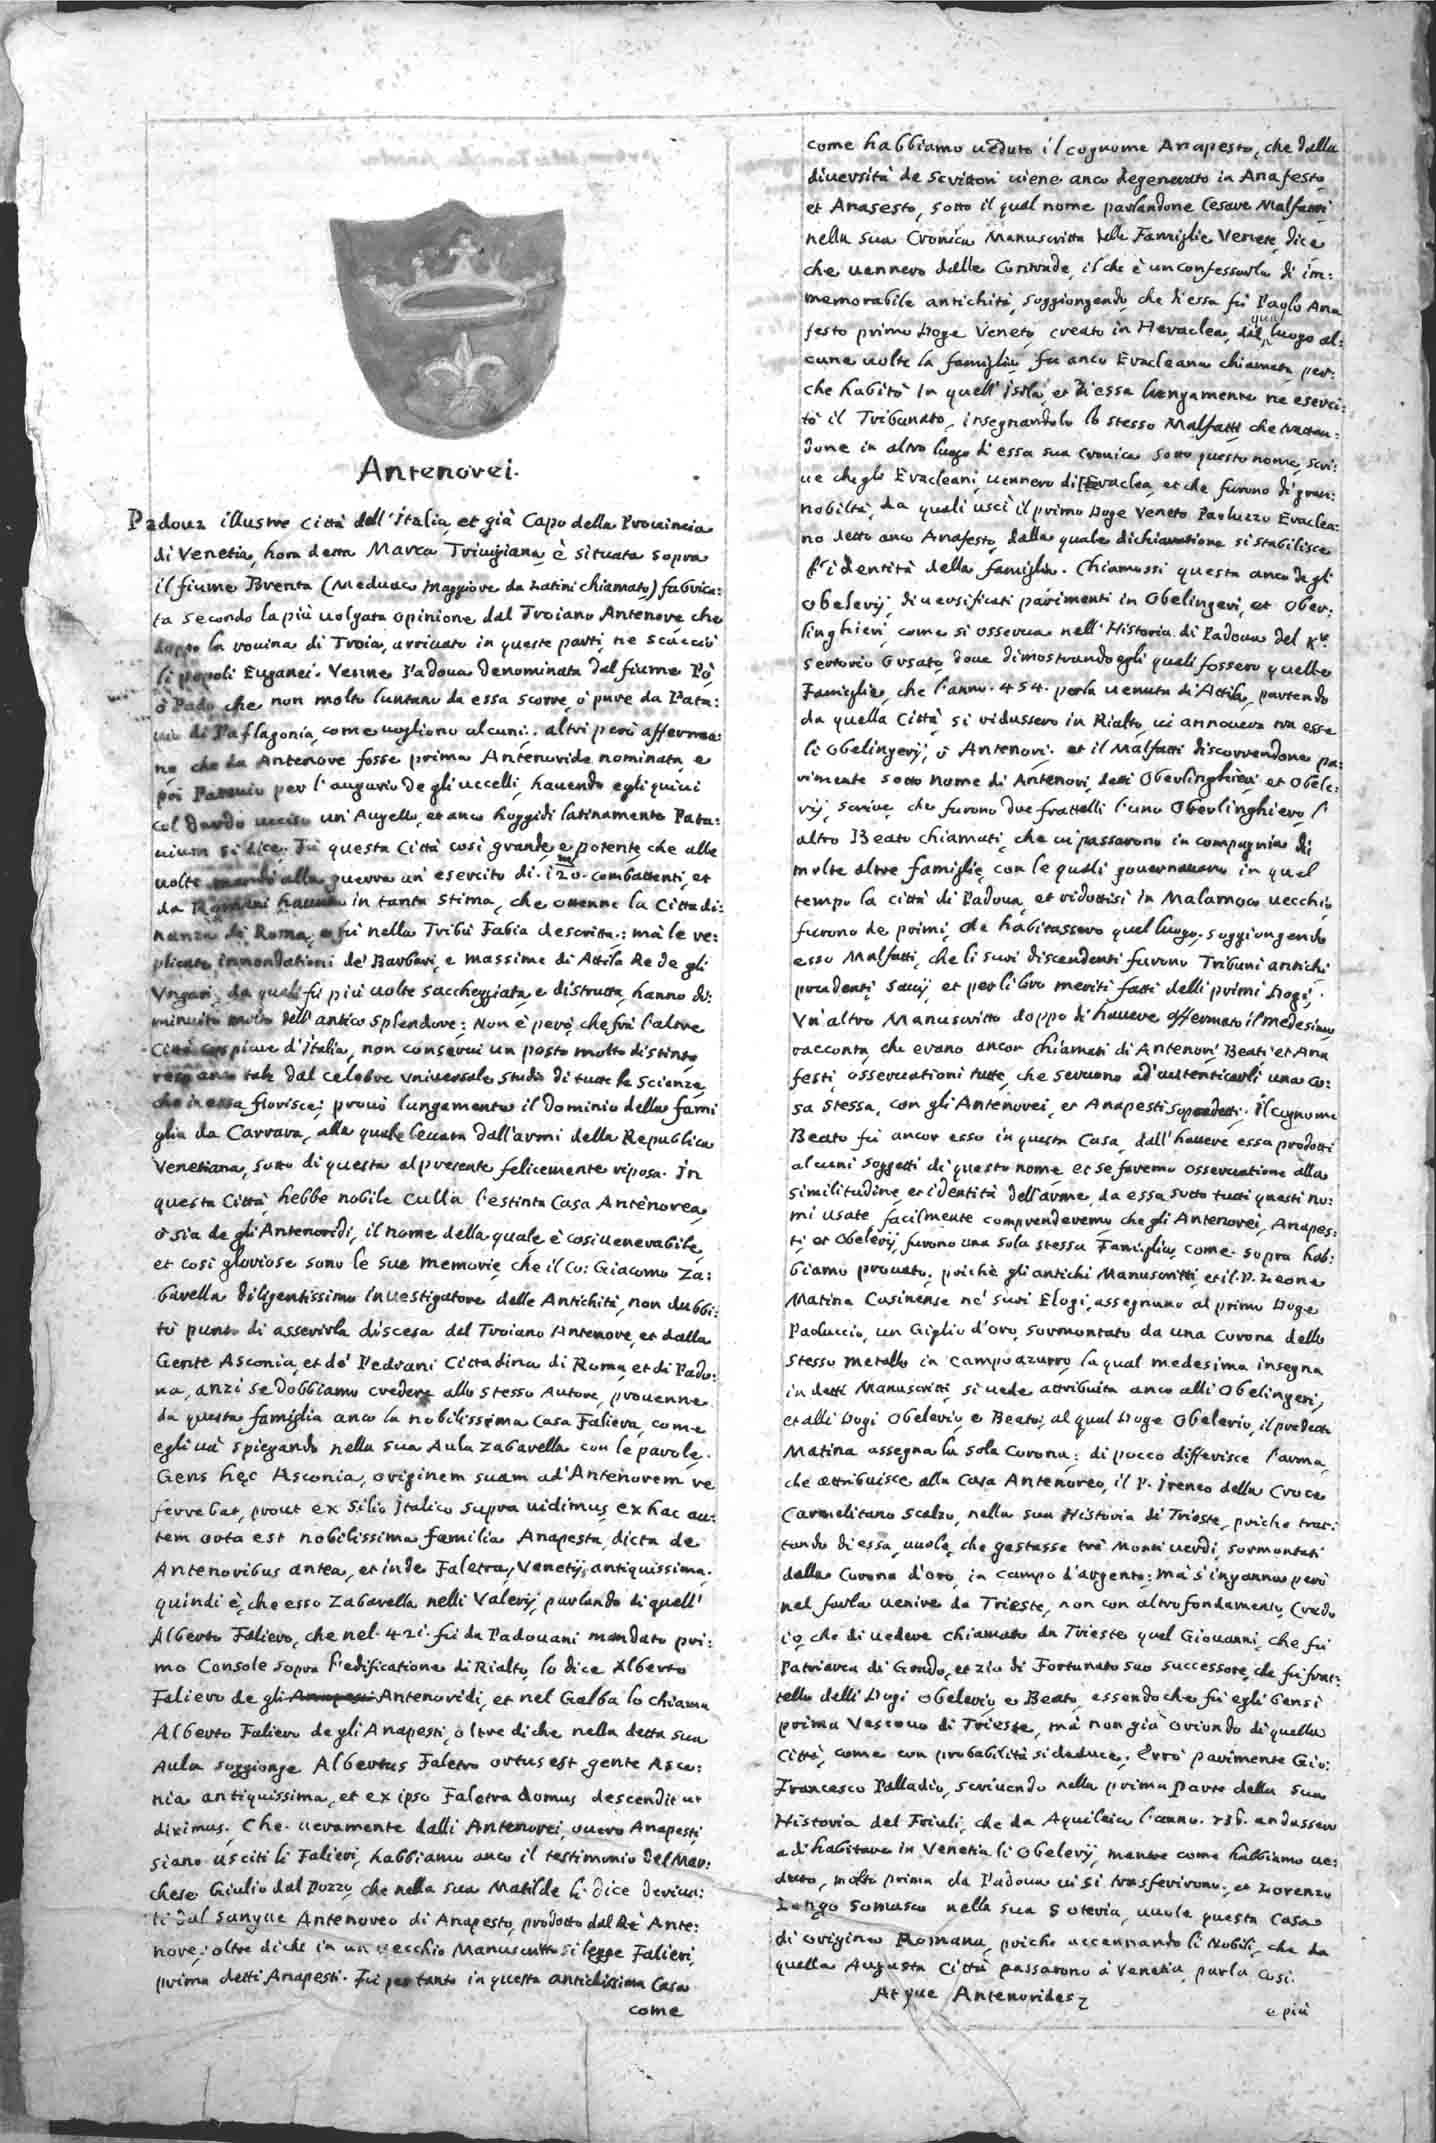 Antenorei.
Padoua illustre Città dell'Italia, et già Capo della Prouincia
di Venetia, hora detta Marca Triuigiana, è situata sopra
il fiume Brenta (Meduaco Maggiore da Latini chiamato) fabrica:
ta secondo la più uolgata opinione dal Troiano Antenore che
doppo la rouina di Troia, arriuato in queste parti, ne scacciò
li popoli Euganei. Venne Padoua denominata dal fiume Pò,
ò Pado che non molto luntano da essa scorre, ò pure da Pata:
uio di Paflagonia, come uogliono alcuni; altri però afferma:
no che da Antenore fosse prima Antenorida nominata, e
poi Patauio per l'augurio de gli uccelli, hauendo egli quiui
col dardo ucciso un'Augello, et anco hoggidi latinamente Pata:
uium si dice. Fù questa Città cosi grande, e potente, che alle
uolte mandò alla guerra un'esercito di 120 combattenti, et
da Romani hauuta in tanta stima, che ottenne la Cittadi:
nanza di Roma, e fù nella Tribù Fabia descritta; mà le re:
plicate innondationi de' Barbari, e massime di Attila Re de gli
Vngari, da quali fù più uolte saccheggiata, e distrutta, hanno di:
minuito molto dell'antico splendore; Non è però, che frà l'altre
Città cospicue d'Italia, non conserui un posto molto distinto
reso anco tale dal celebre Vniuersale Studio di tutte le Scienze,
che in essa florisce; prouò lungamente il dominio della fami
glia da Carrara, alla quale leuata dall'armi della Republica
Venetiana, sotto di questa al presente felicemente riposa. In
questa Città hebbe nobile culla l'estinta Casa Antenorea,
ò sia de gli Antenoridi, il nome della quale è cosi uenerabile,
et cosi gloriose sono le sue memorie, che il Co: Giacomo Za:
barella diligentissimo Inuestigatore delle Antichità, non dubbi:
tò punto di asserirla discesa dal Troiano Antenore, et dalla
Gente Asconia, et de' Pedrani Cittadina di Roma, et di Pado:
ua, anzi se dobbiamo credere allo stesso Autore, prouenne
da questa famiglia anco la nobilissima Casa Faliera, come
egli uà spiegando nella sua Aula Zabarella con le parole.
Gens hęc Asconia, originem suam ad Antenorem re
ferrebat, prout ex Silio Italico supra uidimus, ex hac au:
tem orta est nobilissima familia Anapesta, dicta de
Antenoribus antea, et inde Faletra, Venetijs antiquissima.
quindi è, che esso Zabarella nelli Valerij, parlando di quell'
Alberto Faliero, che nel 421. fù da Padouani mandato pri:
mo Console sopra l'edificatione di Rialto, lo dice Alberto
Faliero de gli Antenoridi, et nel Galba lo chiama
Alberto Faliero de gli Anapesti, oltre di che nella detta sua
Aula soggionge Albertus Faletro ortus est gente Asco:
nia antiquissima, et ex ipso Faletra domus descendit ut
diximus. Che ueramente dalli Antenorei, ouero Anapesti
siano usciti li Falieri, habbiamo anco il testimonio del Mar:
chese Giulio dal Pozzo, che nella sua Matilde li dice deriua:
ti dal sangue Antenoreo di Anapesto, prodotto dal Rè Ante:
nore; oltre di che in un uecchio Manuscritto si legge Falieri,
prima detti Anapesti. Fù per tanto in questa antichissima Casa
come
come habbiamo ueduto il cognome Anapesto, che dalla
diuersità de Scrittori uiene anco degenerato in Anafesto,
et Anasesto, sotto il qual nome parlandone Cesare Malfatti
nella sua Cronica Manuscritta delle Famiglie Venete, dice
che uennero dalle Contrade, il che è un confessarla di im:
memorabile antichità, soggiongendo, che d'essa fù Paolo Ana
festo primo Doge Veneto, creato in Heraclea, dal qual luogo al:
cune uolte la famiglia fù anco Eracleana chiamata, per:
che habitò in quell'Isola, et d'essa lungamente ne eserci:
tò il Tribunato, insegnandolo lo stesso Malfatti, che trattan:
done in altro luogo d'essa sua Cronica sotto questo nome, scri:
ue che gli Eracleani, uennero di Eraclea, et che furono di gran:
nobiltà, da quali uscì il primo Doge Veneto Paoluzzo Eraclea:
no detto anco Anafesto, dalla quale dichiaratione si stabilisce
l'identità della famiglia. Chiamossi questa anco de gli
Obelerij, diuersificati parimenti in Obelingeri, et Ober:
linghieri, come si osserua nell'Historia di Padoua del Kr.
Sertorio Orsato, doue dimostrando egli quali fossero quelle
Famiglie, che l'anno 454. per la uenuta di Attila, partendo
da quella Città, si ridussero in Rialto, ui annouera tra esse
li Obelingerij, ò Antenori. et il Malfatti discorrendone pa:
rimente sotto nome di Antenori, detti Oberlinghieri, et Obele:
rij, scriue, che furono due frattelli l'uno Oberlinghiero, l'
altro Beato chiamati, che ui passarono in compagnia di
molte altre famiglie, con le quali gouernauano in quel
tempo la città di Padoua, et ridottisi in Malamoco uecchio
furono de primi, che habitassero quel luogo, soggiongendo
esso Malfatti, che li suoi discendenti furono Tribuni antichi
prudenti, sauij, et per li loro meriti fatti delli primi Dogi.
Vn'altro Manuscritto doppo d'hauere affermato il medesimo
racconta, che erano ancor chiamati di Antenori Beati et Ana
festi, osseruationi tutte, che seruono ad autenticarli una co:
sa stessa, con gli Antenorei, et Anapesti sopradetti. Il cognome
Beato fù ancor esso in questa Casa, dall'hauere essa prodotti
alcuni Soggetti di questo nome, et se faremo osseruatione alla
similitudine, et identità dell'arme, da essa sotto tutti questi no:
mi usate facilmente comprenderemo che gli Antenorei, Anapes:
ti, et Obelerij furono una sola stessa Famiglia, come sopra hab:
biamo prouato, poichè gli antichi Manuscritti, et il P. Leone
Matina Casinense ne' suoi Elogi, assegnano al primo Doge
Paoluccio, un Giglio d'oro, sormontato da una Corona dello
stesso metallo in campo azurro, la qual medesima insegna
in detti Manuscritti si uede attribuita anco alli Obelingeri,
et alli Dogi Obelerio, e Beato, al qual Doge Obelerio, il predetto
Matina assegna la sola Corona; di pocco differisce l'arma,
che attribuisce alla Casa Antenoreo, il P. Ireneo della Croce
Carmelitano scalzo, nella sua Historia di Trieste, poiche trat:
tando di essa, uuole, che gestasse trè Monti uerdi, sormontati
dalla Corona d'oro, in campo d'argento; mà s'inganna però
nel farla uenire da Trieste, non con altro fondamento, credo
io, che di uedere chiamato da Trieste quel Giouanni, che fù
Patriarca di Grado, et zio di Fortunato suo successore, che fù frat:
tello delli Dogi Obelerio, e Beato, essendo che fù egli bensi
prima Vescouo di Trieste, mà non già oriundo di quella
Città, come con probabilità si deduce. Errò parimente Gio:
Francesco Palladio, scriuendo nella prima parte della sua
Historia del Friuli, che da Aquileia l'anno andassero
ad habitare in Venetia li Obelerij, mentre come habbiamo ue:
duto, molto prima da Padoua ui si trasferirono; et Lorenzo
Longo Somasco nella sua Soteria, uuole questa Casa
di origine Romana, poiche accennando li Nobili, che da
quella Augusta Città passarono à Venetia, parla cosi.
Atque Antenorides
e più